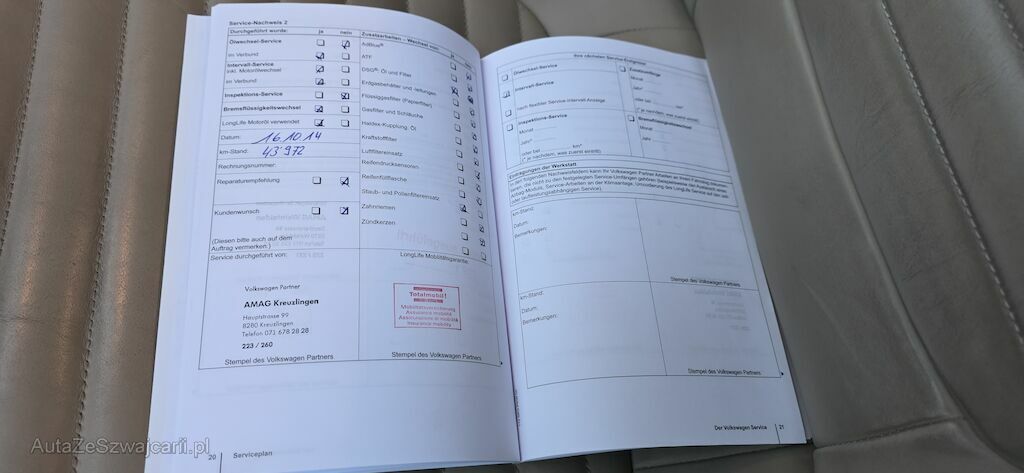 Service-Nachweis 2
Durchgeführt wurde: ja nein
Ölwechsel-Service
im Verbund
Intervall-Service
inkl. Motorölwechsel
im Verbund
Inspektions-Service
Bremsflüssigkeitswechsel
LongLife-Motoröl verwendet
Datum: 16.10.14
km-Stand: 43'972
Rechnungsnummer:
Reparaturempfehlung
Kundenwunsch
(Diesen bitte auch auf dem
Auftrag vermerken:)
Service durchgeführt von:
Volkswagen Partner
AMAG Kreuzlingen
Hauptstrasse 99
8280 Kreuzlingen
Telefon 071 678 28 28
223 / 260
Stempel des Volkswagen Partners
Zusatzarbeiten – Wechsel von: ja nein
AdBlue®
ATF
DSG®: Öl und Filter
Erdgasbehälter und -leitungen
Flüssiggasfilter (Papierfilter)
Gasfilter und Schläuche
Haldex-Kupplung, Öl
Kraftstofffilter
Luftfiltereinsatz
Reifendrucksensoren
Reifenfüllflasche
Staub- und Pollenfiltereinsatz
Zahnriemen
Zündkerzen
LongLife Mobilitätsgarantie:
Totalmobil!
Mobilitätsversicherung
Assurance mobilité
Assicurazione di mobilità
Insurance mobility
Stempel des Volkswagen Partners
20 Serviceplan
Ihre nächsten Service-Ereignisse
Ölwechsel-Service
Intervall-Service
nach flexibler Service-Intervall-Anzeige
Inspektions-Service
Monat
Jahr*
oder bei km*
(* je nachdem, was zuerst eintritt)
Zusatzumfänge
Monat
Jahr*
oder bei km*
(* je nachdem, was zuerst eintritt)
Bremsflüssigkeitswechsel
Monat
Jahr
Eintragungen der Werkstatt
km-Stand:
Datum:
Bemerkungen:
Stempel des Volkswagen Partners
km-Stand:
Datum:
Bemerkungen:
Stempel des Volkswagen Partners
Der Volkswagen Service 21
AutaZeSzwajcarii.pl